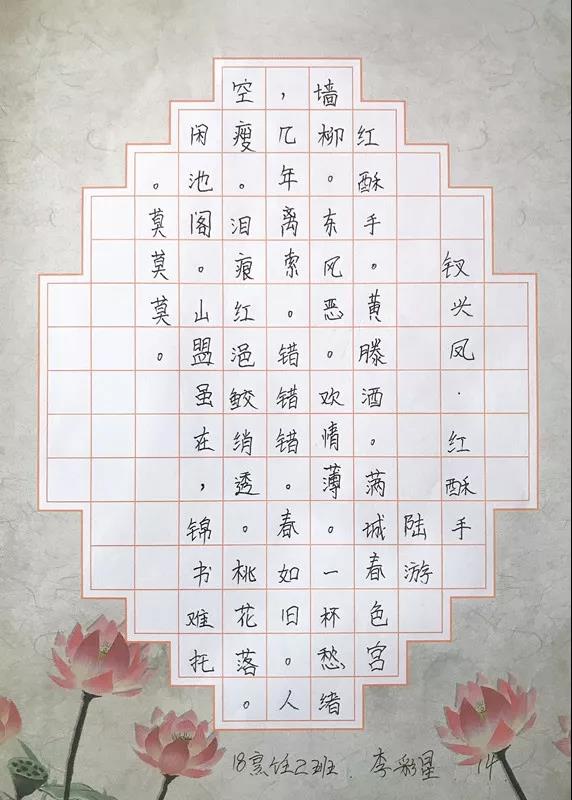 钗头凤·红酥手
陆游
红酥手。黄滕酒。满城春色宫
墙柳。东风恶。欢情薄。一杯愁绪
，几年离索。错错错。春如旧。人
空瘦。泪痕红浥鲛绡透。桃花落。
闲池阁。山盟虽在，锦书难托
。莫莫莫。
18烹饪2班 李彩星 14